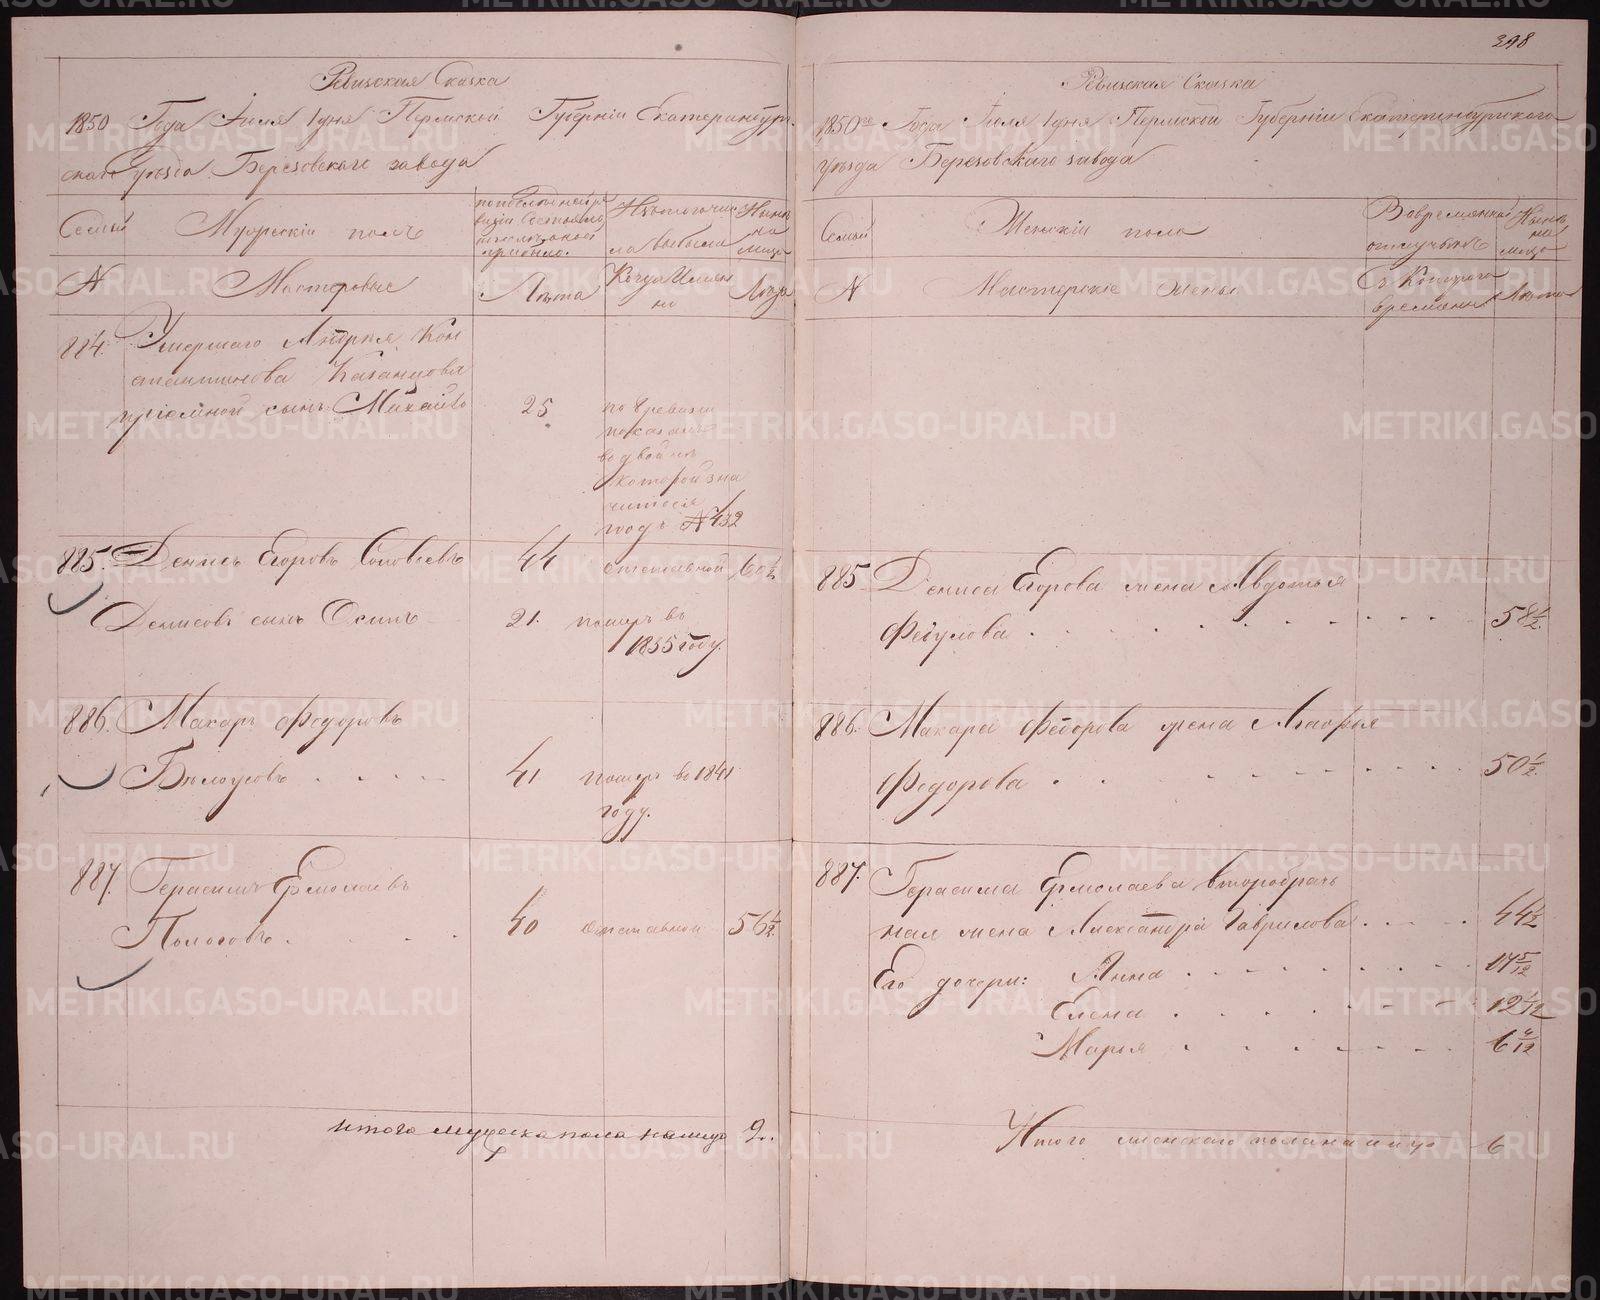 398
Ревизская Сказка
1850 Года Іюля 1 дня Пермской Губерніи Екатеринбург-
скаго уѣзда Березовскаго завода
Семьи
Мужескій полъ
по последней ре
визіи состояло
и после оной
прибыло.
Изъ того числа выбыло
Нынѣ на лицо
N
Мастеровые
Лѣта
Когда Имянно
Лѣта
884.
Умершаго Андрея Кон
стантинова Казанцова
пріемной сынъ Михайло
25
по 8 ревизіи
показанъ
вдвойнѣ
которой зна
чится
подъ № 432
885.
Денисъ Егоровъ Соловьевъ
44
отставной
60 1/2
Денисовъ сынъ Осипъ
21.
померъ въ
1835 году.
886.
Макаръ Федоровъ
Белоусовъ
41
померъ въ 1841
году.
887.
Герасимъ Ермолаевъ
Пологовъ
40
отставной
56 1/2
итого мужеска пола налицо 2.
Ревизская Сказка
1850 го Года Іюля 1 дня Пермской Губерніи Екатеринбургскаго
уѣзда Березовскаго завода
Семьи
Женскій полъ
Во временной
отлучкѣ
Нынѣ на лицо
N
Мастерскіе жены
С Котораго
времени
Лѣта
885
Дениса Егорова жена Авдотья
Фегулова
58 1/2.
886.
Макара Федорова жена Агафья
Федорова
50 1/2.
887.
Герасима Ермолаева второбрач
ная жена Александра Гаврилова
44 1/2
Его дочери: Анна
17 5/12
Елена
12 1/12
Марья
6 4/12
Итого женскаго пола налицо 6
METRIKI.GASO-URAL.RU